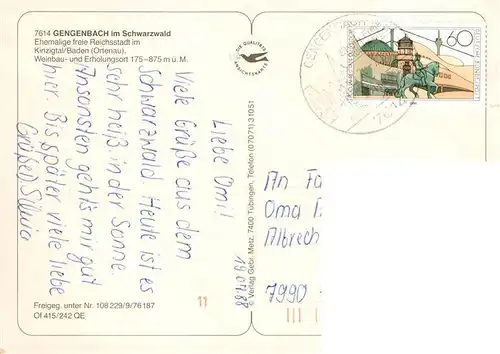 7614 GENGENBACH im Schwarzwald
Ehemalige freie Reichsstadt im
Kinzigtal/Baden (Ortenau).
Weinbau- und Erholungsort 175–875 m ü. M.
DIE QUALITÄTS
ANSICHTSKARTE
GENGENB
60
7614
19.07.88
Liebe Omi!
Viele Grüße aus dem
Schwarzwald. Heute ist es
sehr heiß in der Sonne.
Ansonsten geht's mir gut
hier. Bis später viele liebe
Grüße, Silvia
© Verlag Gebr. Metz, 7400 Tübingen, Telefon (07071) 31051
An Fa
Oma
Albrech
7990
Freigeg. unter Nr. 108 229/9/76187
Of 415/242 QE
11